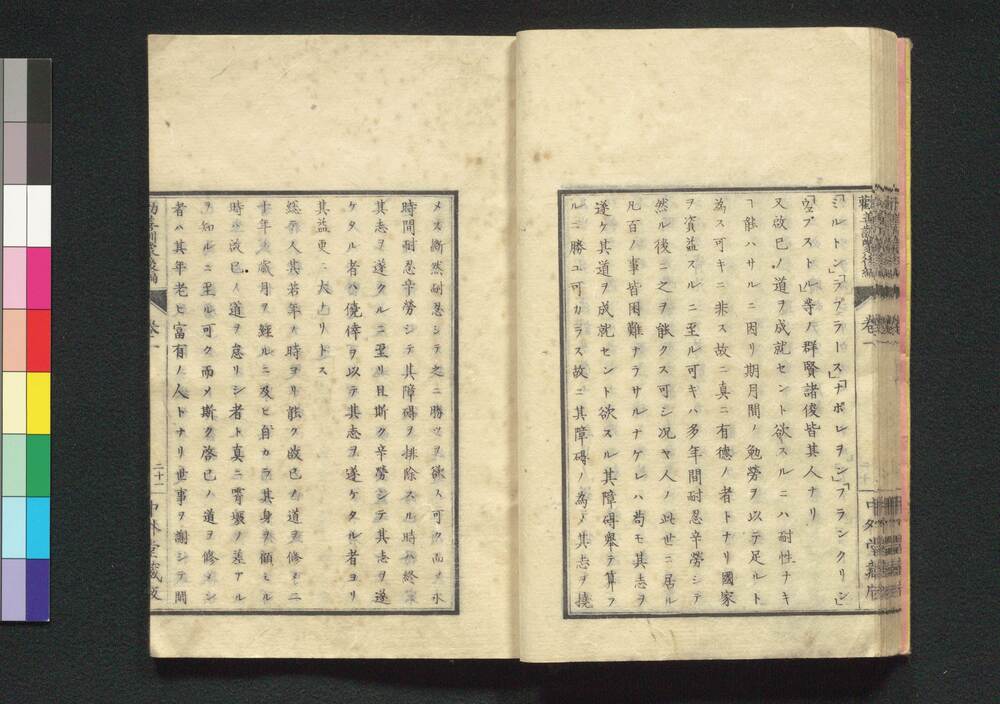 「ミルトン」「ラプラース」「ナポレヲン」「フランクリン」
「ウェブストル」等ノ群賢諸俊皆其人ナリ
又啟已ノ道ヲ成就セント欲スルニハ耐性ナキ
ヿ能ハサルニ因リ期月間ノ勉勞ヲ以テ足ルト
為ス可キニ非ス故ニ真ニ有德ノ者トナリ國家
ヲ資益スルニ至ル可キハ多年間耐忍辛勞シテ
然ル後ニ之ヲ能ク可シ况ヤ人ノ此世ニ居ル
凡百ノ事皆困難ナラサルナケレハ苟モ其志ヲ
遂ケ其道ヲ成就セント欲スル其障碍舉テ算フ
ルニ勝ユ可カラス故ニ其障碍ノ為メ其志ヲ撓
卷一
メス斷然耐忍シテ之ニ勝ツヲ欲ス可ク而メ永
時間耐忍辛勞シテ其障碍ヲ排除スル時ハ終ニ
其志ヲ遂クルニ至リ且斯ク辛勞シテ其志ヲ遂
ケタル者ハ僥倖ヲ以テ其志ヲ遂ケタル者ヨリ
其益更ニ大ナリトス
總テ人其若年ノ時ヨリ能ク啟已ノ道ヲ修メニ
十年ノ歲月ヲ經ルニ及ヒ自カラ其身ヲ顧ミル
時ハ啟已ノ道ヲ怠リシ者ト真ニ霄壤ノ差アル
ヲ知ルニ至ル可ク而メ斯ク啓已ノ道ヲ修メシ
者ハ其年老ヒ富有ノ人トナリ世事ヲ謝シテ閒
二十一
中外堂藏版